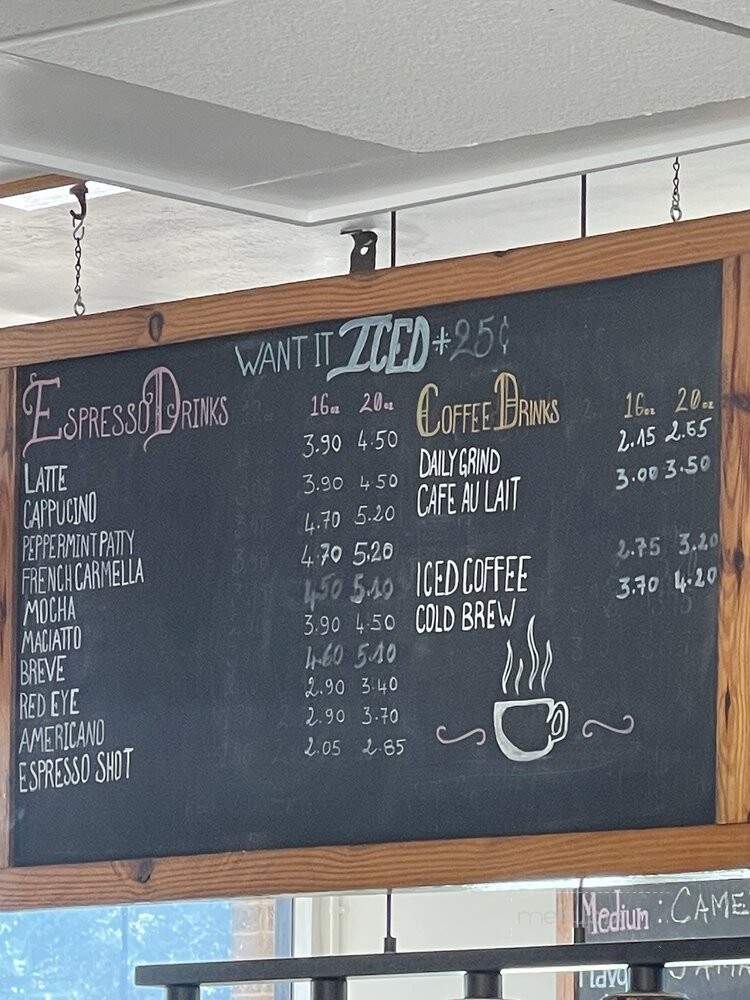 WANT IT ICED +25¢
ESPRESSO DRINKS 16oz 20oz
LATTE 3.90 4.50
CAPPUCINO 3.90 4.50
PEPPERMINT PATTY 4.70 5.20
FRENCH CARMELLA 4.70 5.20
MOCHA 4.50 5.10
MACIATTO 3.90 4.50
BREVE 4.60 5.10
RED EYE 2.90 3.40
AMERICANO 2.90 3.70
ESPRESSO SHOT 2.05 2.85
COFFEE DRINKS 16oz 20oz
DAILY GRIND 2.15 2.65
CAFE AU LAIT 3.00 3.50
ICED COFFEE 2.75 3.20
COLD BREW 3.70 4.20
Medium : CAME